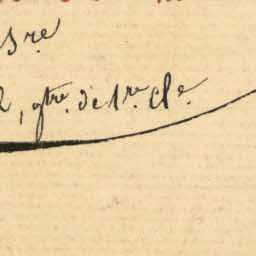 5re
, qtre. de 1re. Cle.